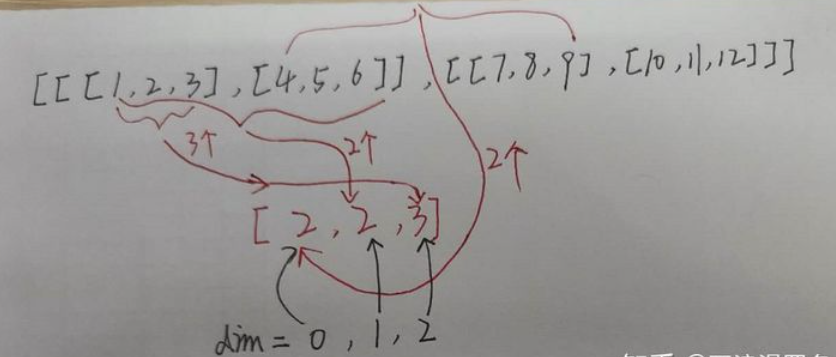 [[[1,2,3],[4,5,6]],[[7,8,9],[10,11,12]]]
3个
2个
2个
[2,2,3]
dim=0,1,2